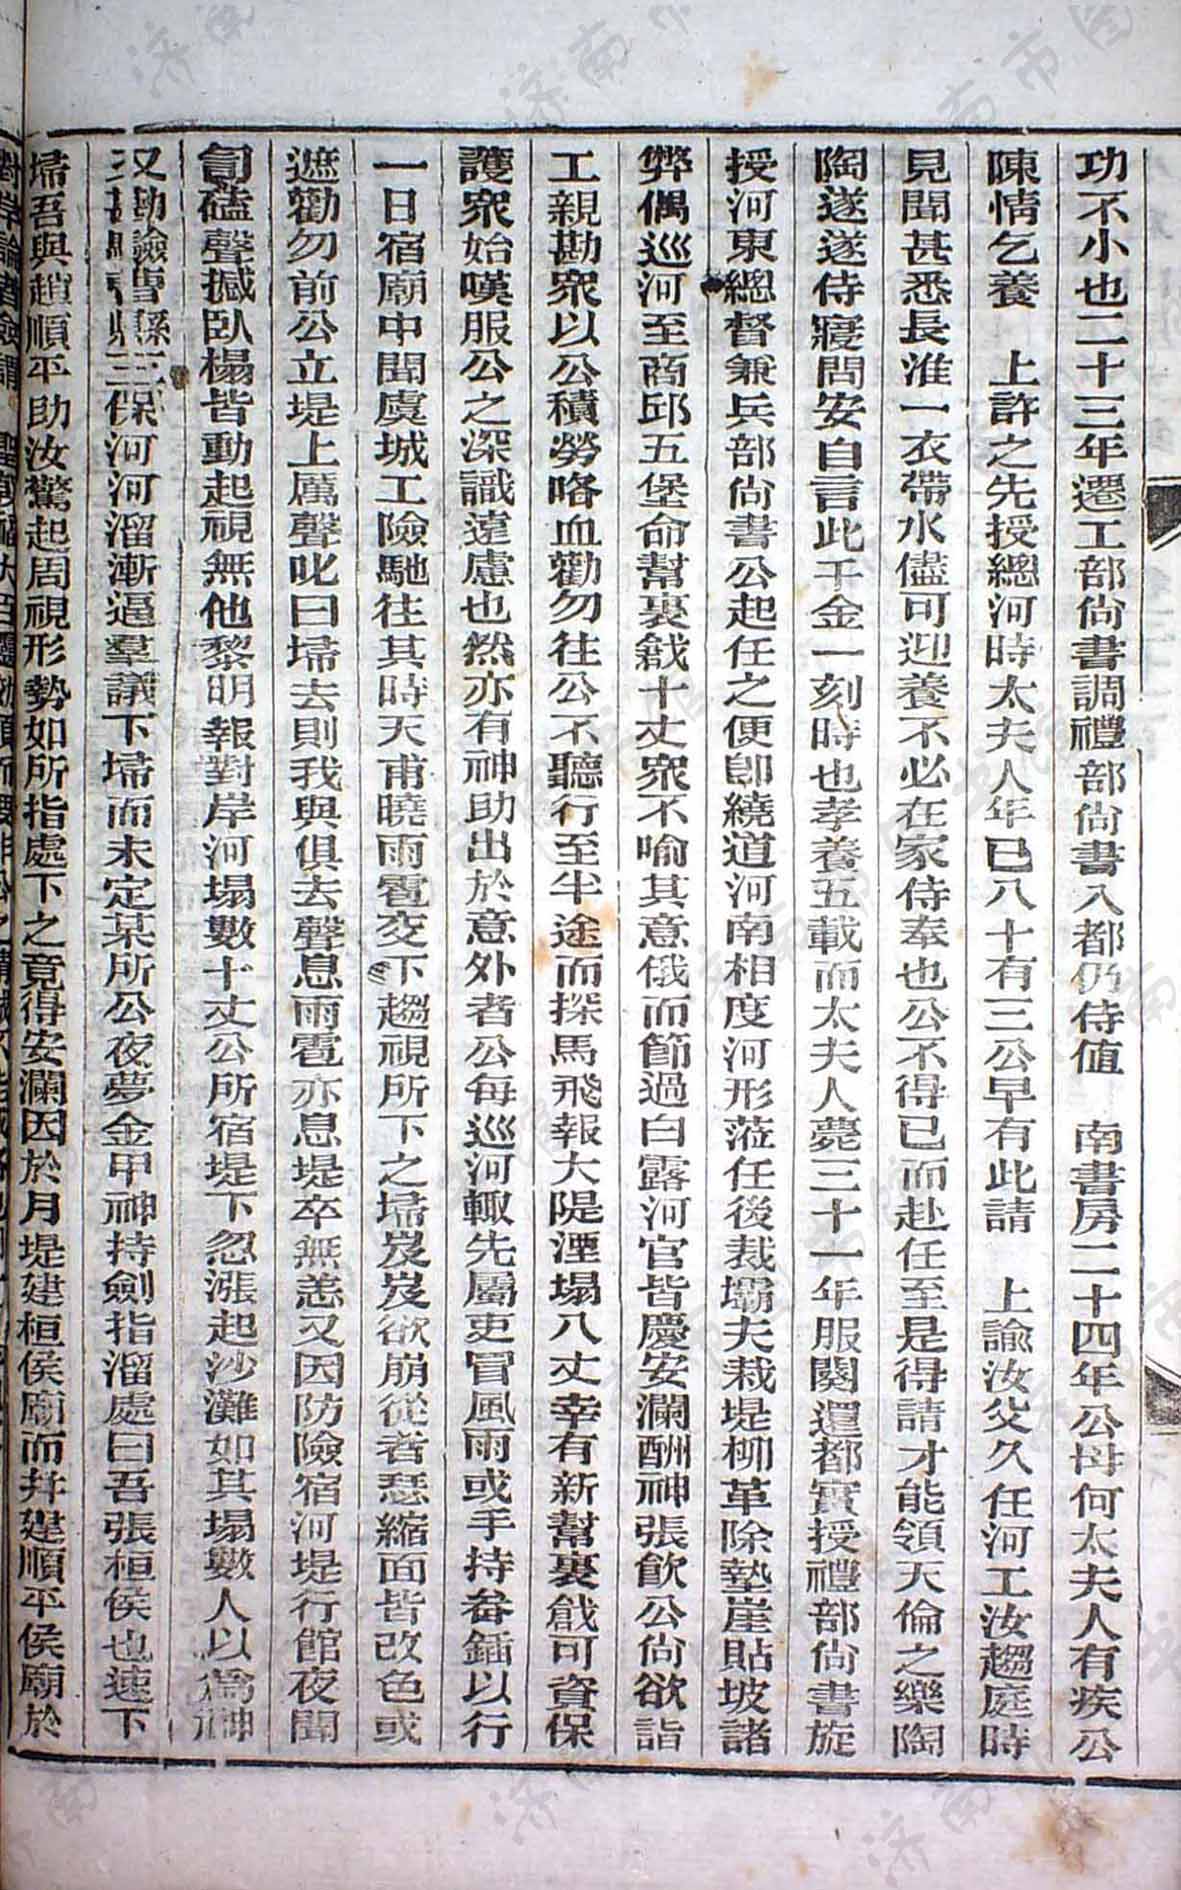 功不小也二十三年遷工部尚書調禮部尚書入都仍侍值　南書房二十四年公母何太夫人有疾公
陳情乞養　上許之先授總河時太夫人年已八十有三公早有此請　上諭汝父久任河工汝趨庭時
見聞甚悉長淮一衣帶水儘可迎養不必在家侍奉也公不得已而赴任至是得請才能領天倫之樂陶
陶遂遂侍寢問安自言此千金一刻時也孝養五載而太夫人薨三十一年服闋還都實授禮部尚書旋
授河東總督兼兵部尚書公起任之便卽繞道河南相度河形蒞任後裁壩夫栽堤柳革除墊崖貼坡諸
弊偶巡河至商邱五堡命幫裏戧十丈衆不喻其意俄而節過白露河官皆慶安瀾酬神張飮公尚欲詣
工親勘衆以公積勞咯血勸勿往公不聽行至半途而探馬飛報大隄湮塌八丈幸有新幫裏戧可資保
護衆始嘆服公之深識遠慮也然亦有神助出於意外者公每巡河輙先屬吏冒風雨或手持畚鍤以行
一日宿廟中聞虞城工險馳往其時天甫曉雨雹交下趨視所下之埽岌岌欲崩從者瑟縮面皆改色或
遮勸勿前公立堤上厲聲叱曰埽去則我與俱去聲息雨雹亦息堤卒無恙又因防險宿河堤行館夜聞
匉磕聲撼臥榻皆動起視無他黎明報對岸河塌數十丈公所宿堤下忽漲起沙灘如其塌數人以爲神
又勘險曹縣三保河河溜漸逼羣議下埽而未定某所公夜夢金甲神持劍指溜處曰吾張桓侯也速下
埽吾與趙順平助汝驚起周視形勢如所指處下之竟得安瀾因於月堤建桓侯廟而幷建順平侯廟於